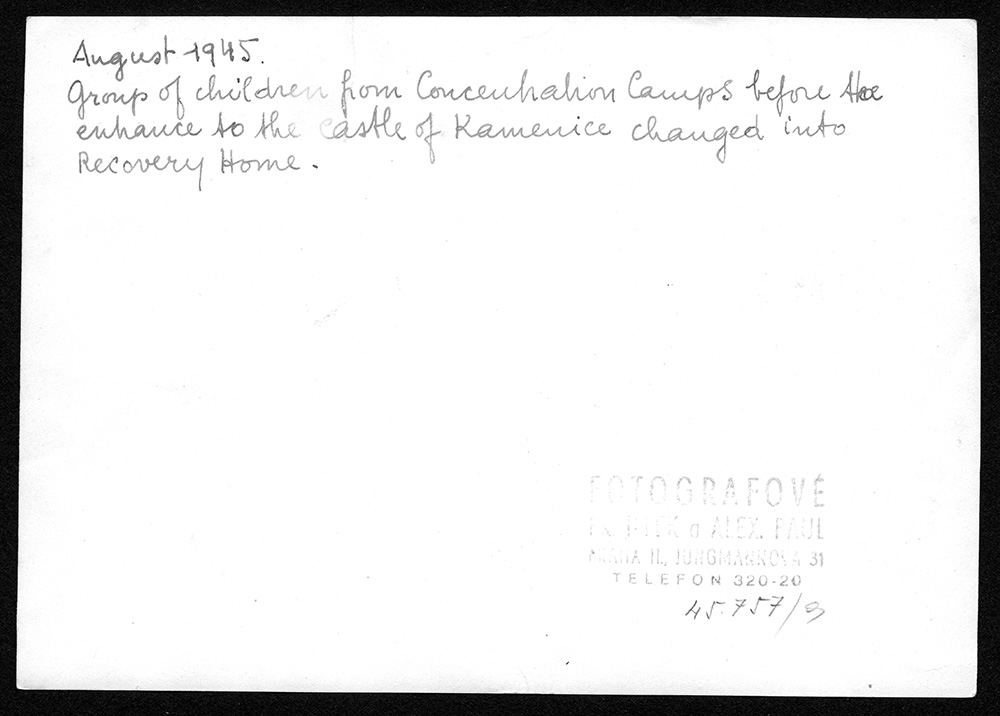 August 1945.
Group of children from Concentration Camps before the
entrance to the castle of Kamenice changed into
Recovery Home.
FOTOGRAFOVÉ
a ALEX. PAUL
PRAHA II., JUNGMANNOVA 31
TELEFON 320-20
45.757/